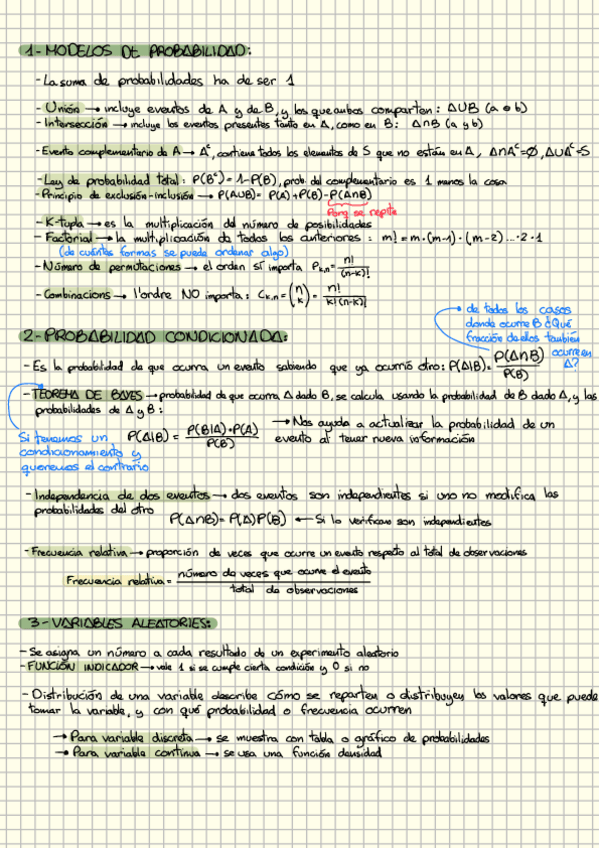 1-MODELOS DE PROBABILIDAD:
- La suma de probabilidades ha de ser 1
- Unión → incluye eventos de A y de B, y los que ambos comparten: A∪B (a o b)
- Intersección → incluye los eventos presentes tanto en A, como en B: A∩B (a y b)
- Evento complementario de A → Aᶜ, contiene todos los elementos de S que no están en A, A∩Aᶜ=∅, A∪Aᶜ=S
- Ley de probabilidad total: P(Bᶜ) = 1-P(B), prob. del complementario es 1 menos la cosa
- Principio de exclusión-inclusión → P(A∪B) = P(A) + P(B) - P(A∩B)
Porq se repite
- K-tupla → es la multiplicación del número de posibilidades
- Factorial → la multiplicación de todos los anteriores : m! = m·(m-1)·(m-2)...·2·1
(de cuántas formas se puede ordenar algo)
- Número de permutaciones → el orden sí importa Pₖ,ₙ = n!/(n-k)!
- Combinacions → l'ordre NO importa: Cₖ,ₙ = (n k) = n!/k!(n-k)!
→ de todos los casos
donde ocurre B ¿Qué
fracción de ellos también
ocurre en
A?
2-PROBABILIDAD CONDICIONADA:
- Es la probabilidad de que ocurra un evento sabiendo que ya ocurrió otro: P(A|B) = P(A∩B)/P(B)
- TEOREMA DE BAYES → probabilidad de que ocurra A dado B, se calcula usando la probabilidad de B dado A, y las
probabilidades de A y B :
P(A|B) = P(B|A)·P(A)/P(B)
→ Nos ayuda a actualizar la probabilidad de un
evento al tener nueva información
Si tenemos un
condicionamiento y
queremos el contrario
- Independencia de dos eventos → dos eventos son independientes si uno no modifica las
probabilidades del otro
P(A∩B) = P(A)P(B) ← Si lo verifican son independientes
- Frecuencia relativa → proporción de veces que ocurre un evento respecto al total de observaciones
Frecuencia relativa = número de veces que ocurre el evento / total de observaciones
3-VARIABLES ALEATORIES:
- Se asigna un número a cada resultado de un experimento aleatorio
- FUNCIÓN INDICADOR → vale 1 si se cumple cierta condición y 0 si no
- Distribución de una variable describe cómo se reparten o distribuyen los valores que puede
tomar la variable, y con qué probabilidad o frecuencia ocurren
→ Para variable discreta → se muestra con tabla o gráfico de probabilidades
→ Para variable continua → se usa una función densidad